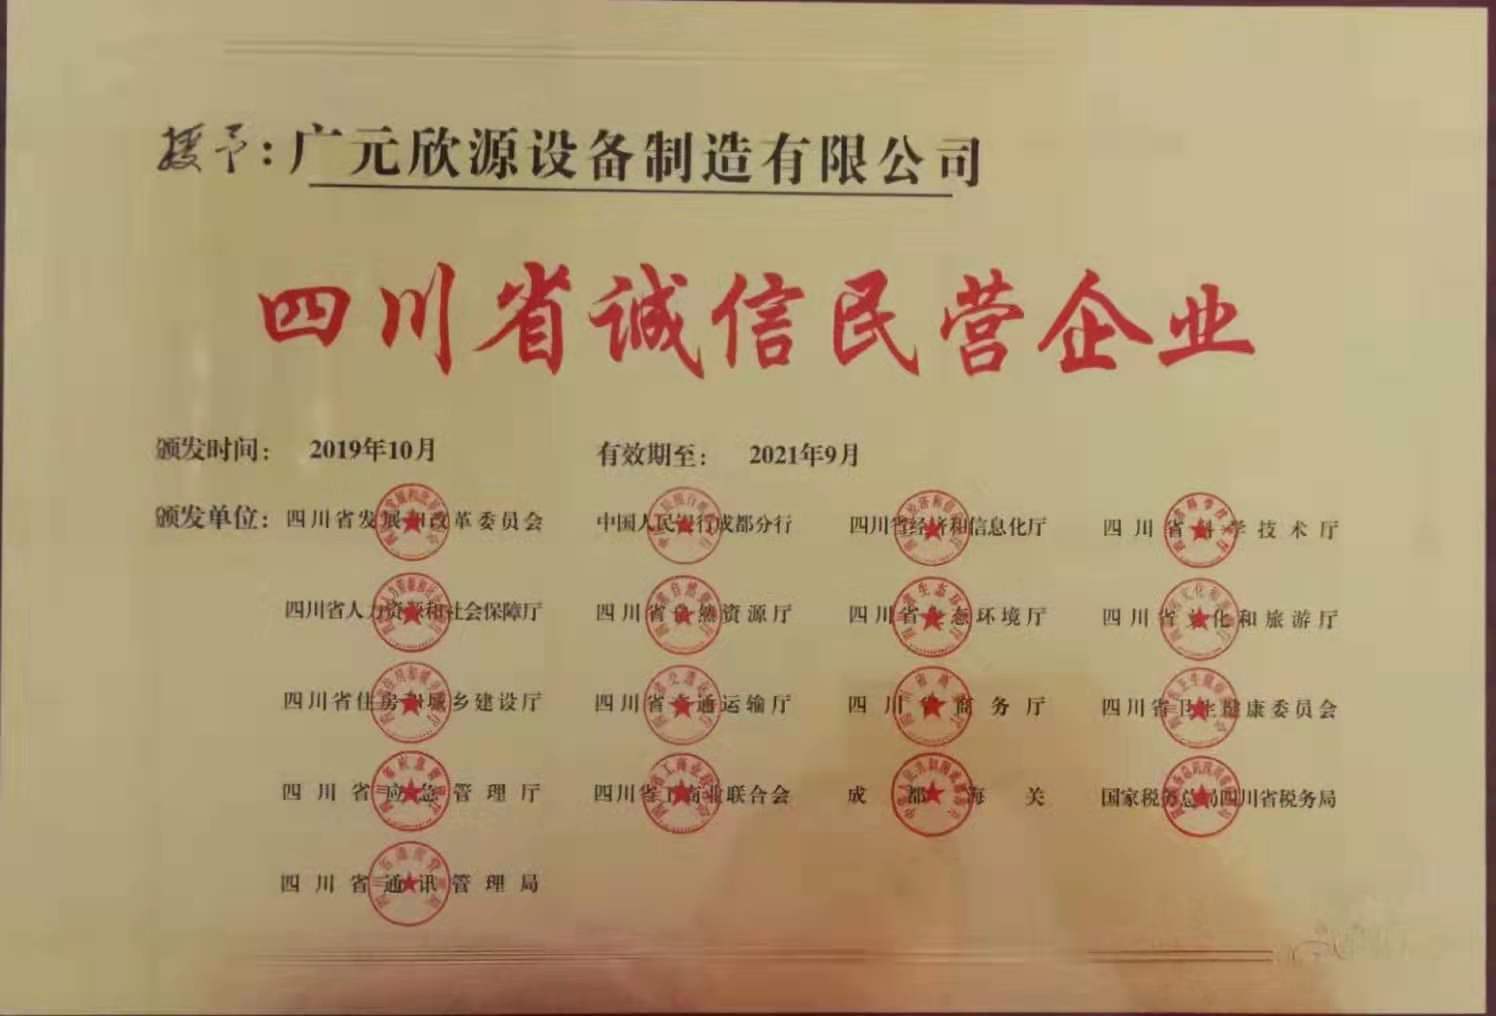 授予：广元欣源设备制造有限公司
四川省诚信民营企业
颁发时间： 2019年10月 有效期至： 2021年9月
颁发单位：四川省发展和改革委员会 中国人民银行成都分行 四川省经济和信息化厅 四川省科学技术厅
四川省人力资源和社会保障厅 四川省自然资源厅 四川省生态环境厅 四川省文化和旅游厅
四川省住房和城乡建设厅 四川省交通运输厅 四川省商务厅 四川省卫生健康委员会
四川省应急管理厅 四川省工商业联合会 成都海关 国家税务总局四川省税务局
四川省通讯管理局